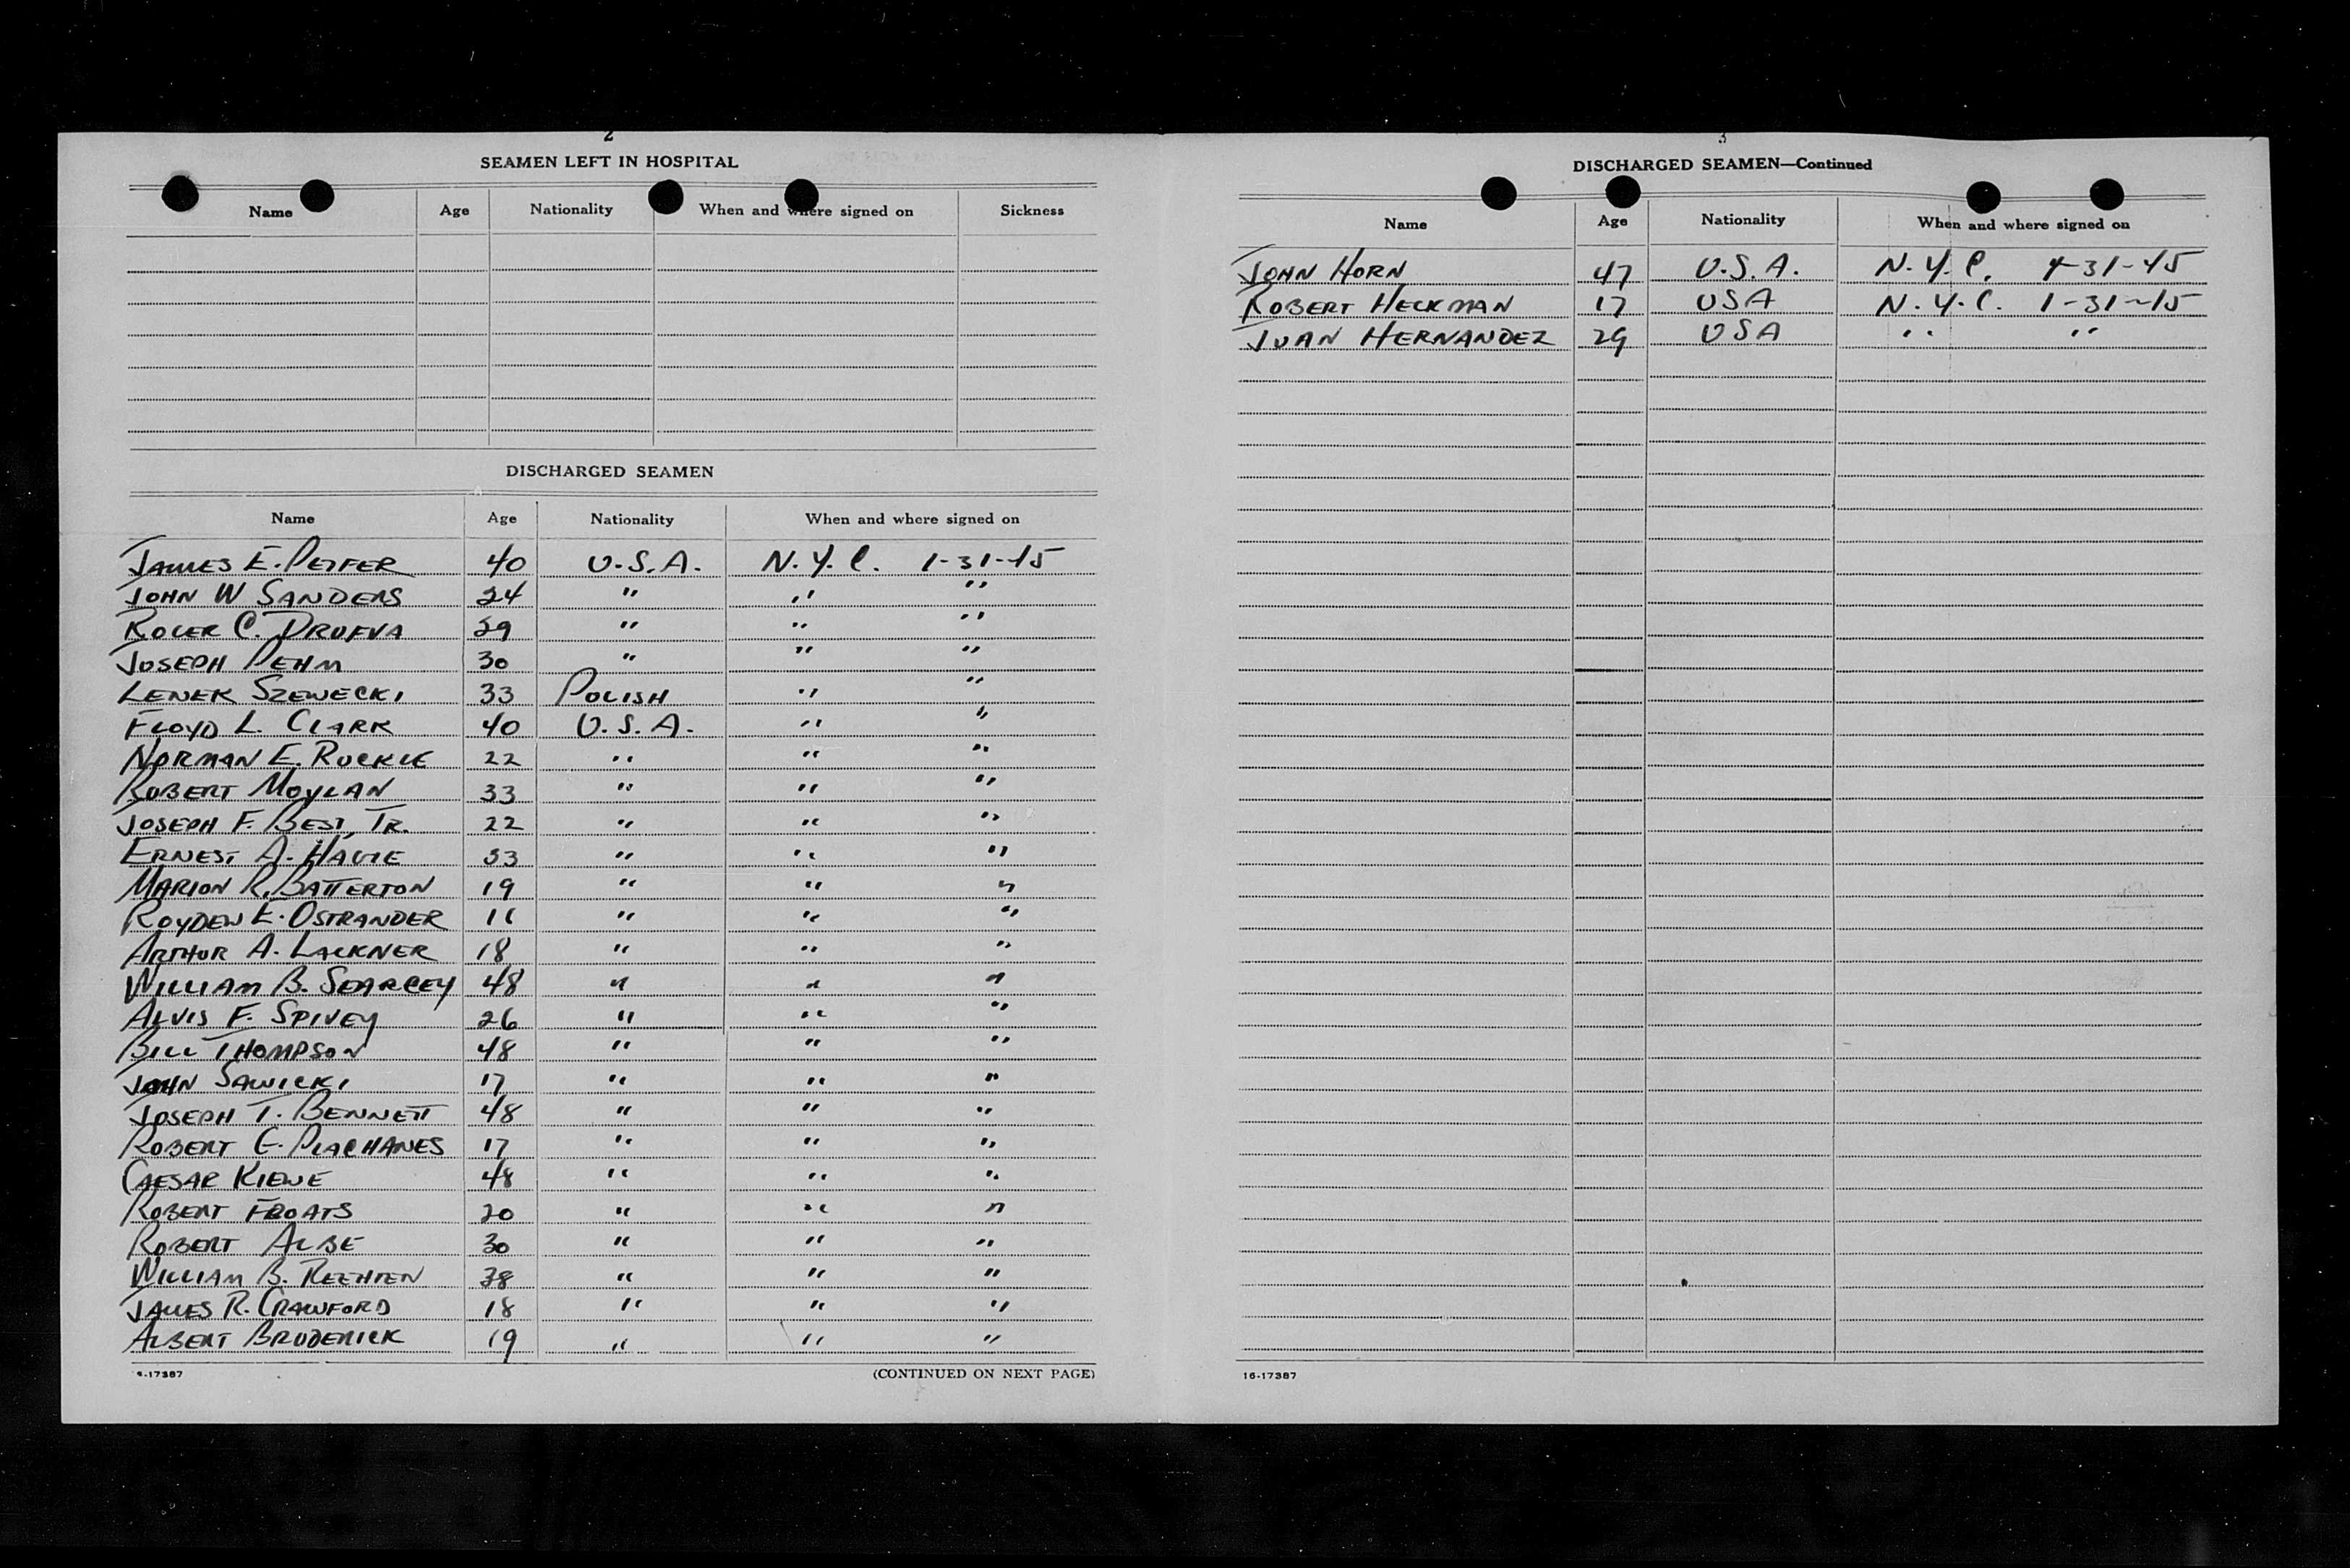 2
SEAMEN LEFT IN HOSPITAL
Name Age Nationality When and where signed on Sickness
DISCHARGED SEAMEN
Name Age Nationality When and where signed on
JAMES E. PEIFER 40 U.S.A. N.Y.C. 1-31-45
JOHN W SANDERS 24 " " "
ROGER C. 29 " " "
JOSEPH PEHM 30 " " "
LENER SZEWECKI 33 POLISH " "
FLOYD L. CLARK 40 U.S.A. " "
NORMAN E. RUCKLE 22 " " "
ROBERT MOYLAN 33 " " "
JOSEPH F. BEST, JR. 22 " " "
ERNEST A. 53 " " "
MARION R. BATTERTON 19 " " "
ROYDEN E. OSTRANDER " " "
ARTHUR A. LACKNER 18 " " "
WILLIAM B. SEARCEY 48 " " "
ALVIS F. SPIVEY 26 " " "
BILL THOMPSON 48 " " "
JOHN SAWICKI 17 " " "
JOSEPH T. BENNETT 48 " " "
ROBERT G. PLACHANES 17 " " "
CAESAR KIEWE 48 " " "
ROBERT FROATS 20 " " "
ROBERT ALBE 30 " " "
WILLIAM B. 38 " " "
JAMES R. CRAWFORD 18 " " "
ALBERT BRODERICK 19 " " "
6-17387 (CONTINUED ON NEXT PAGE)
3
DISCHARGED SEAMEN—Continued
Name Age Nationality When and where signed on
JOHN HORN 47 U.S.A. N.Y.C. 1-31-45
ROBERT HECKMAN 17 USA N.Y.C. 1-31-45
JUAN HERNANDEZ 29 USA " "
16-17387